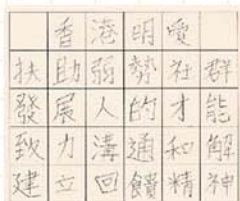 香港明愛
扶助弱勢社群
發展人的才能
致力溝通和解
建立回饋精神